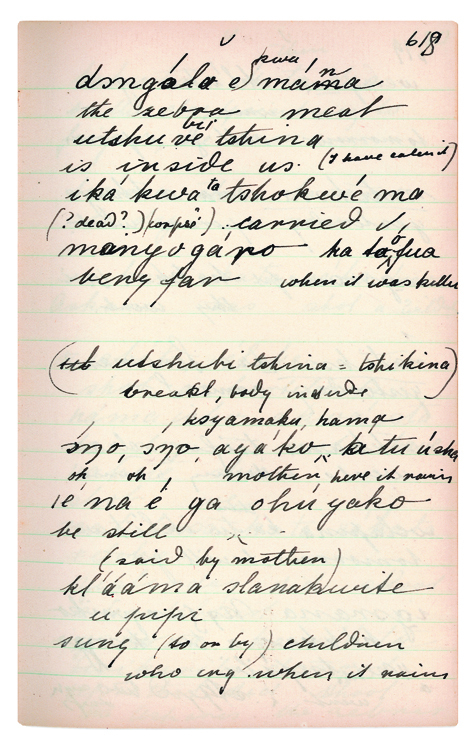 618
dongála e kwa máma
the zebra meat
utshu bu ve tshina
is inside us. (I have eaten it)
iká kwa ta tshokwé ma
(? dead?) (corpse) carried
manyogáro ka tafua
very far when it was killed
(utshubi tshina = tshikina)
breast, body inside
, ksyamaku, hama
ayáko, katu úsha
oh oh mother, here it rains
ié na é ga ohúyako
be still
(said by mother)
kl'ááma slanakwise
u pipi
sung (to or by) children
who cry when it rains